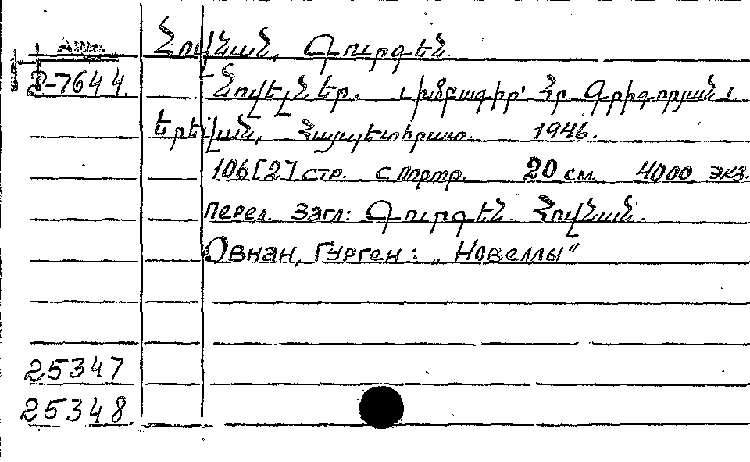 Հովնան, Գուրգեն
2-7644 Նովելներ. Խմբագիր՝ Հր Գրիգորյան:
Երևան, Հայպետհրատ. 1946.
106[2] стр. с портр. 20 см. 4000 экз.
Перед загл: Գուրգեն Հովնան.
Овнан, Гурген: „Новеллы“
25347
25348